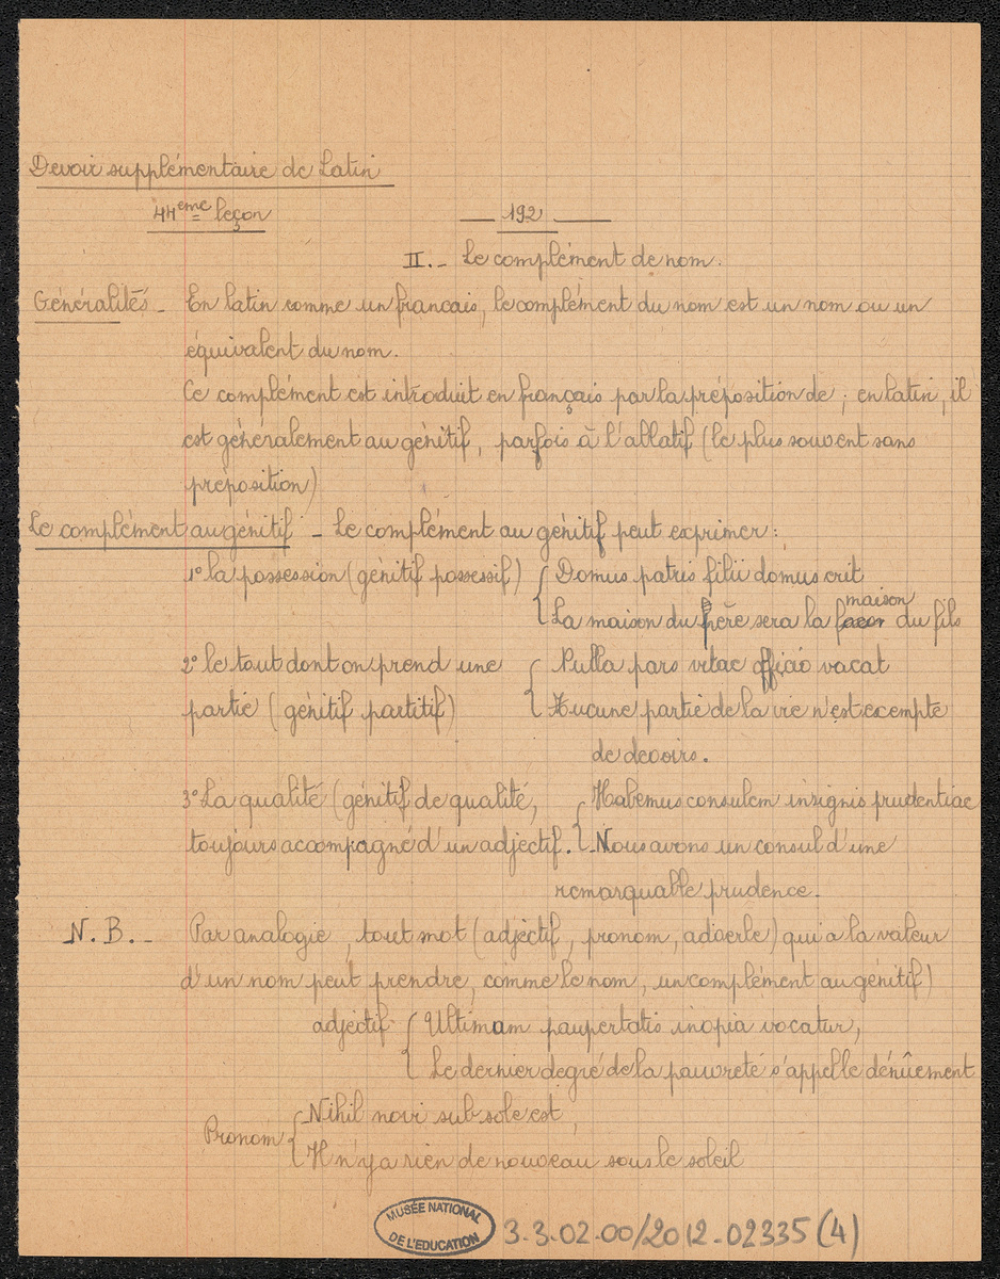 Devoir supplémentaire de Latin
44ème leçon
192
II.- Le complément de nom.
Généralités - En latin comme un francais, le complément du nom est un nom ou un
équivalent du nom.
Ce complément est introduit en français par la préposition de ; en latin, il
est généralement au génitif, parfois à l'ablatif (le plus souvent sans
préposition)
Le complément au génitif - Le complément au génitif peut exprimer :
1° la possession (génitif possessif) { Domus patris filii domus erit
maison
La maison du père sera la du fils
2° le tout dont on prend une { Nulla pars vitae officio vacat
partie (génitif partitif) Aucune partie de la vie n'est exempte
de devoirs.
3° La qualité (génitif de qualité, { Habemus consulem insignis prudentiae
toujours accompagné d'un adjectif. Nous avons un consul d'une
remarquable prudence.
N.B.- Par analogie, tout mot (adjectif, pronom, adverbe) qui a la valeur
d'un nom peut prendre, comme le nom, un complément au génitif)
adjectif { Ultimam paupertatis inopia vocatur,
Le dernier degré de la pauvreté s'appelle dénûement
Pronom { Nihil novi sub sole est,
Il n'y a rien de nouveau sous le soleil
MUSÉE NATIONAL
DE L'EDUCATION
3.3.02.00/2012-02335(4)